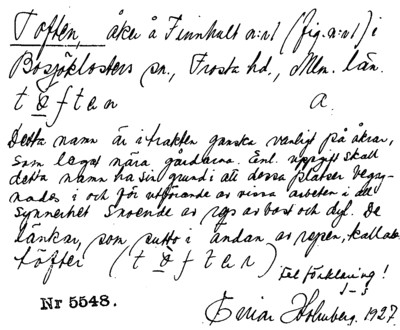 Toften, åker å Finnhult a:1 (fig. a:1) i
Bosjöklosters sn., Frosta hd., Mlm. län.
tǫftan a.
Detta namn är i trakten ganska vanligt på åkrar,
som legat nära gårdarna. Enl. uppgift skall
detta namn ha sin grund i att dessa platser begag-
nades i och för utförande av vissa arbeten i det
synnerhet snoende av rep och dyl. De
bänkar, som sutto i ändan av repen, kallades
töfter (tǫftar)
Fel förklaring!
J-S
Nr 5548.
Einar Holmberg. 1927.